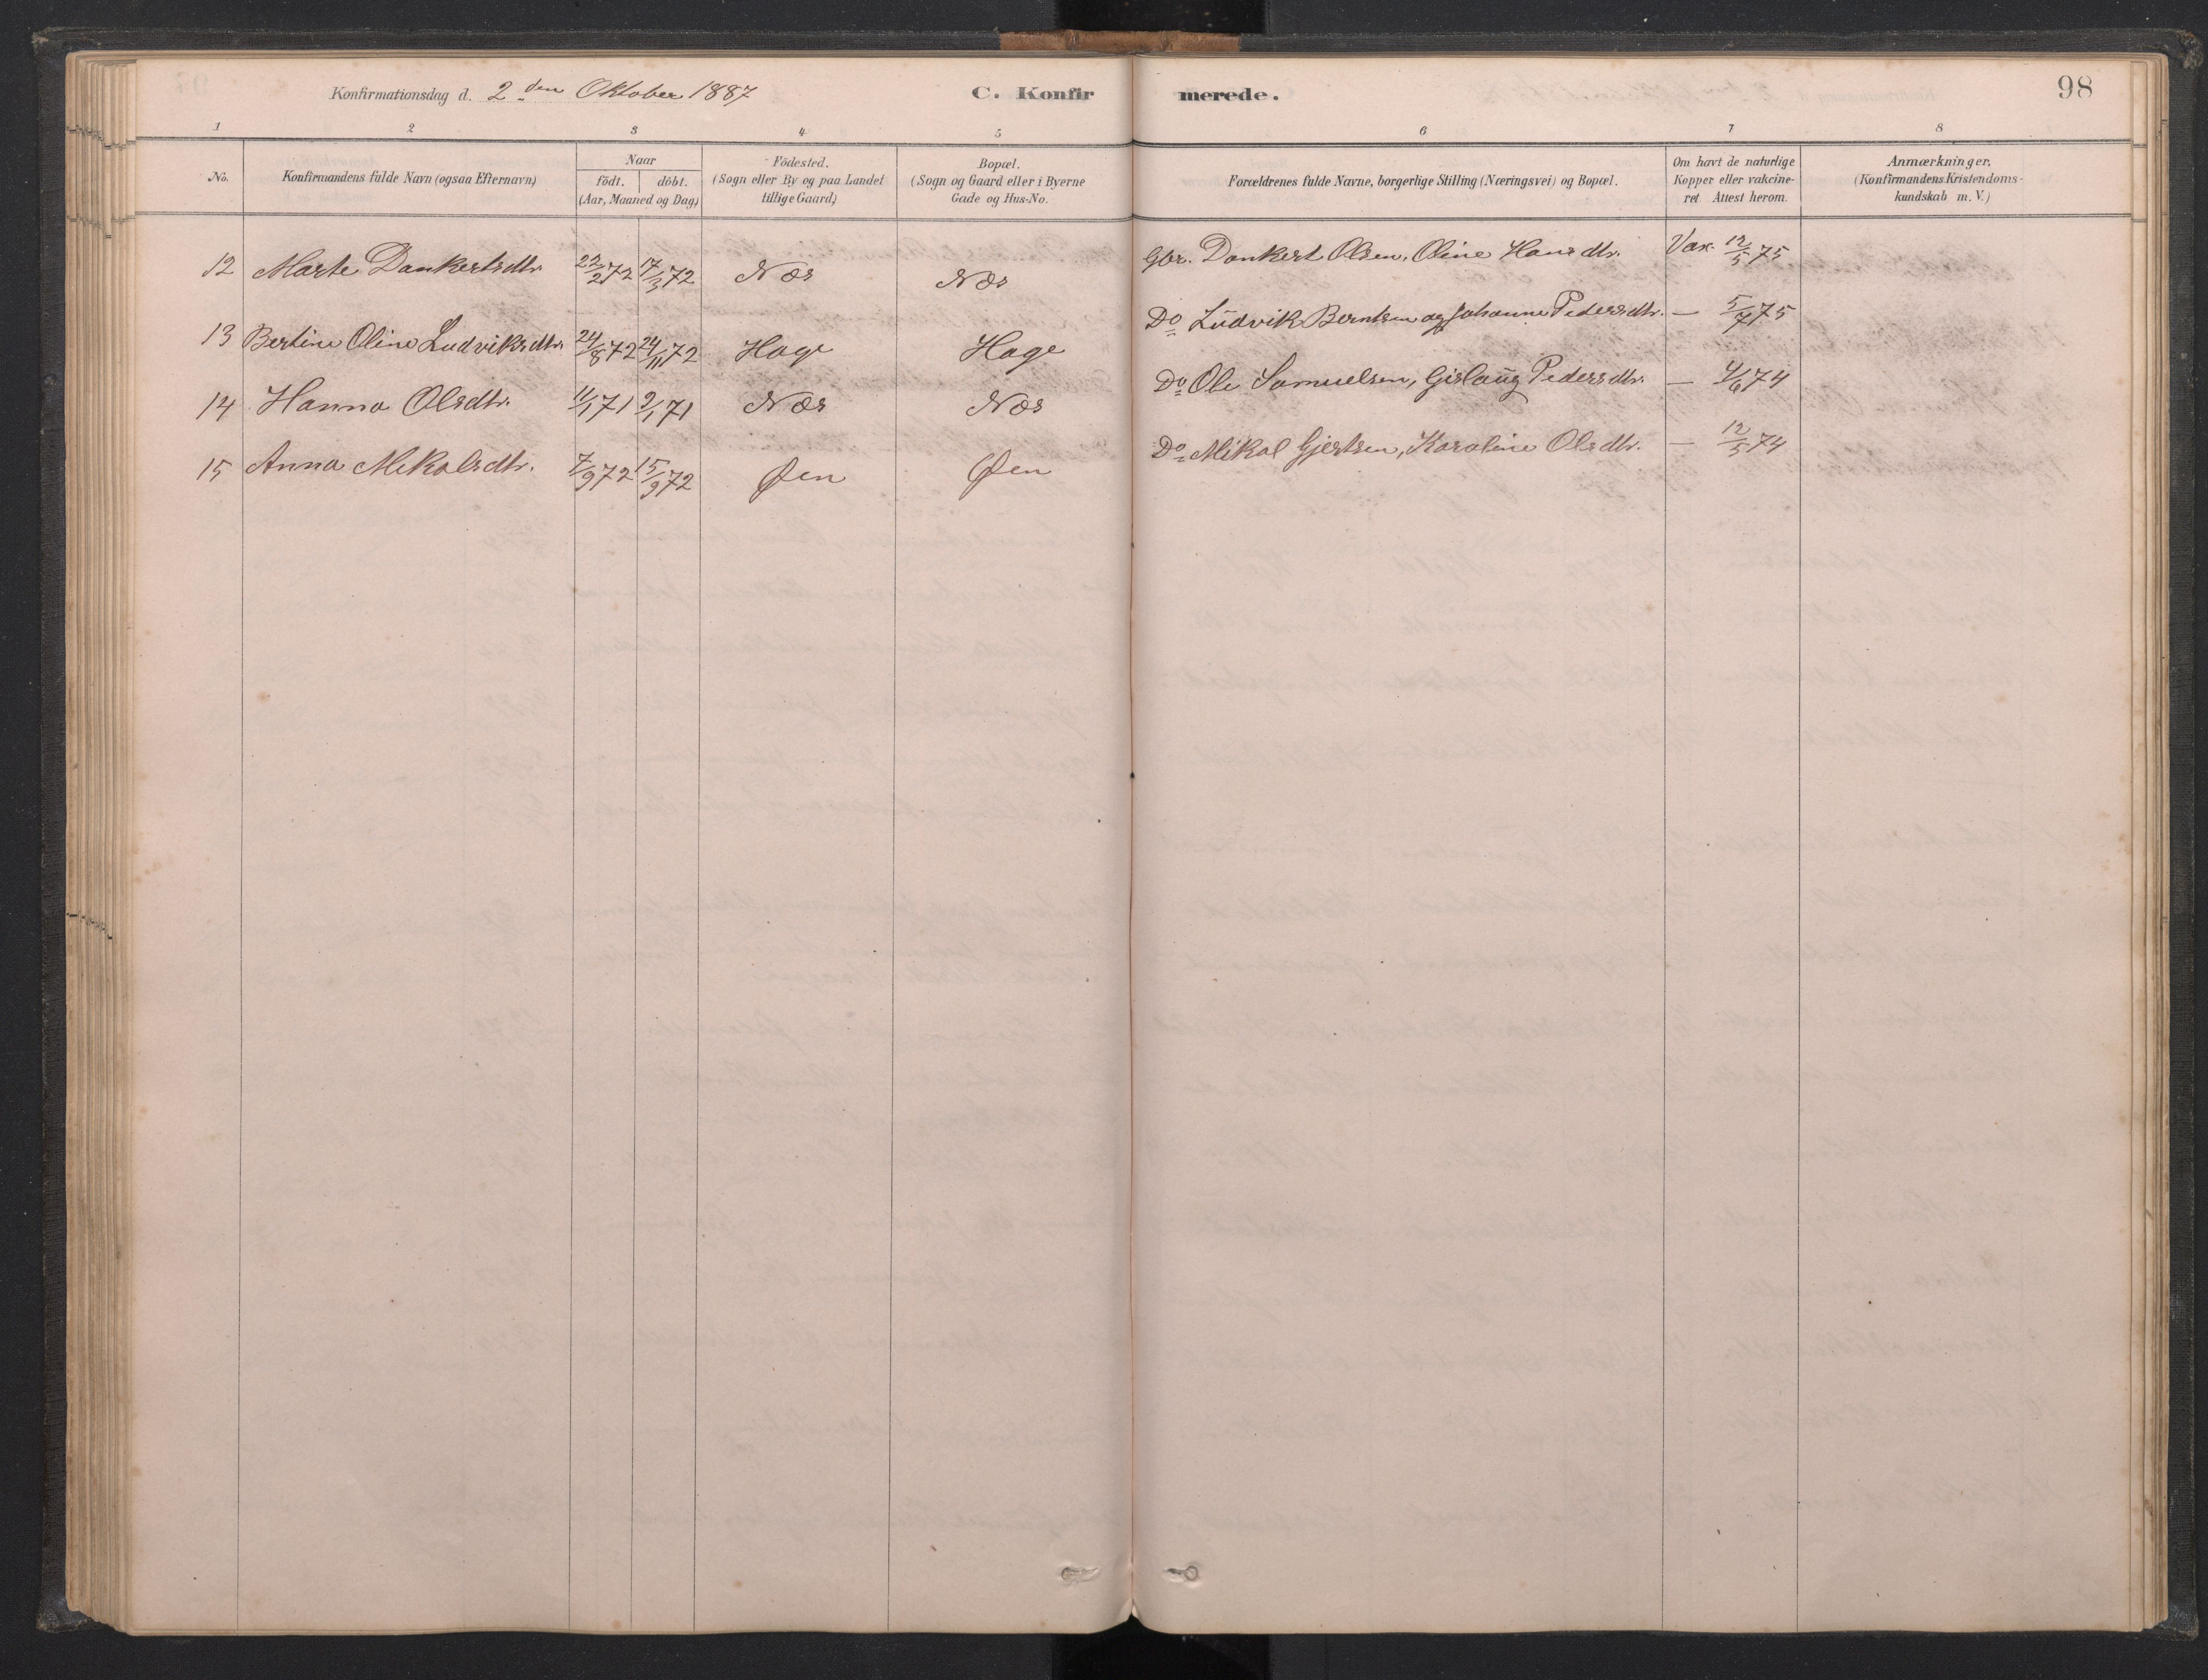 Konfirmationsdag d. 2den Oktober 1887
C. Konfirmerede.
98
1 2 3 4 5 6 7 8
No.
Konfirmandens fulde Navn (ogsaa Efternavn)
Naar
födt. döbt.
(Aar, Maaned og Dag)
Födested.
(Sogn eller By og paa Landet
tillige Gaard)
Bopæl.
(Sogn og Gaard eller i Byerne
Gade og Hus-No.
Forældrenes fulde Navne, borgerlige Stilling (Næringsvei) og Bopæl.
Om havt de naturlige
Kopper eller vakcine-
ret. Attest herom.
Anmærkninger.
(Konfirmandens Kristendoms-
kundskab m. V.)
12 Marte Dankertsdtr. 22/2 72 17/3 72 Næs Næs Gbr. Dankert Olsen, Oline Hansdtr. Vax. 12/5 75
13 Bertine Oline Ludviksdtr. 24/8 72 24/11 72 Hage Hage Do Ludvik Berntsen og Johanne Pedersdtr. — 5/7 75
14 Hanna Olsdtr. 11/1 71 2/1 71 Næs Næs Do Ole Samuelsen, Gislaug Pedersdtr. — 4/6 74
15 Anna Mikalsdtr. 7/9 72 15/9 72 Øen Øen Do Mikal Gjertsen, Karoline Olsdtr. — 12/5 74